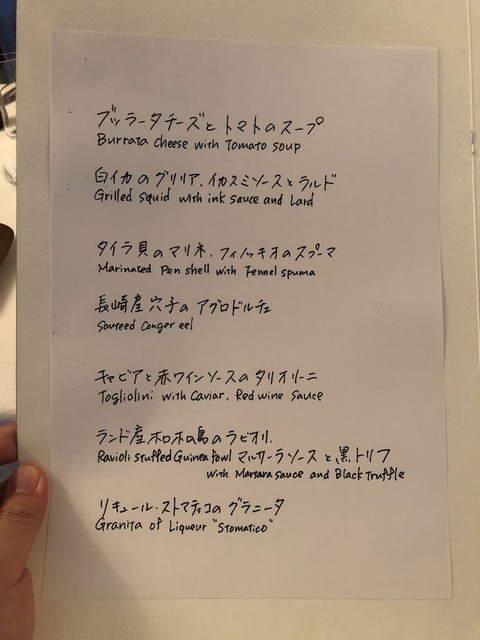 ブッラータチーズとトマトのスープ
Burrata cheese with Tomato soup
白イカのグリリア、イカスミソースとラルド
Grilled squid with ink sauce and Lard
タイラ貝のマリネ、フィノッキオのスプーマ
Marinated Pen shell with Fennel spuma
長崎産穴子のアグロドルチェ
Souteed Conger eel
キャビアと赤ワインソースのタリオリーニ
Togliolini with Caviar. Red wine sauce
ランド産ホロホロ鳥のラビオリ.
Ravioli stuffed Guinea fowl マルサーラソースと黒トリフ
with Marsara sauce and Black Truffle
リキュール・ストマティコのグラニータ
Granita of Liqueur "Stomatico"